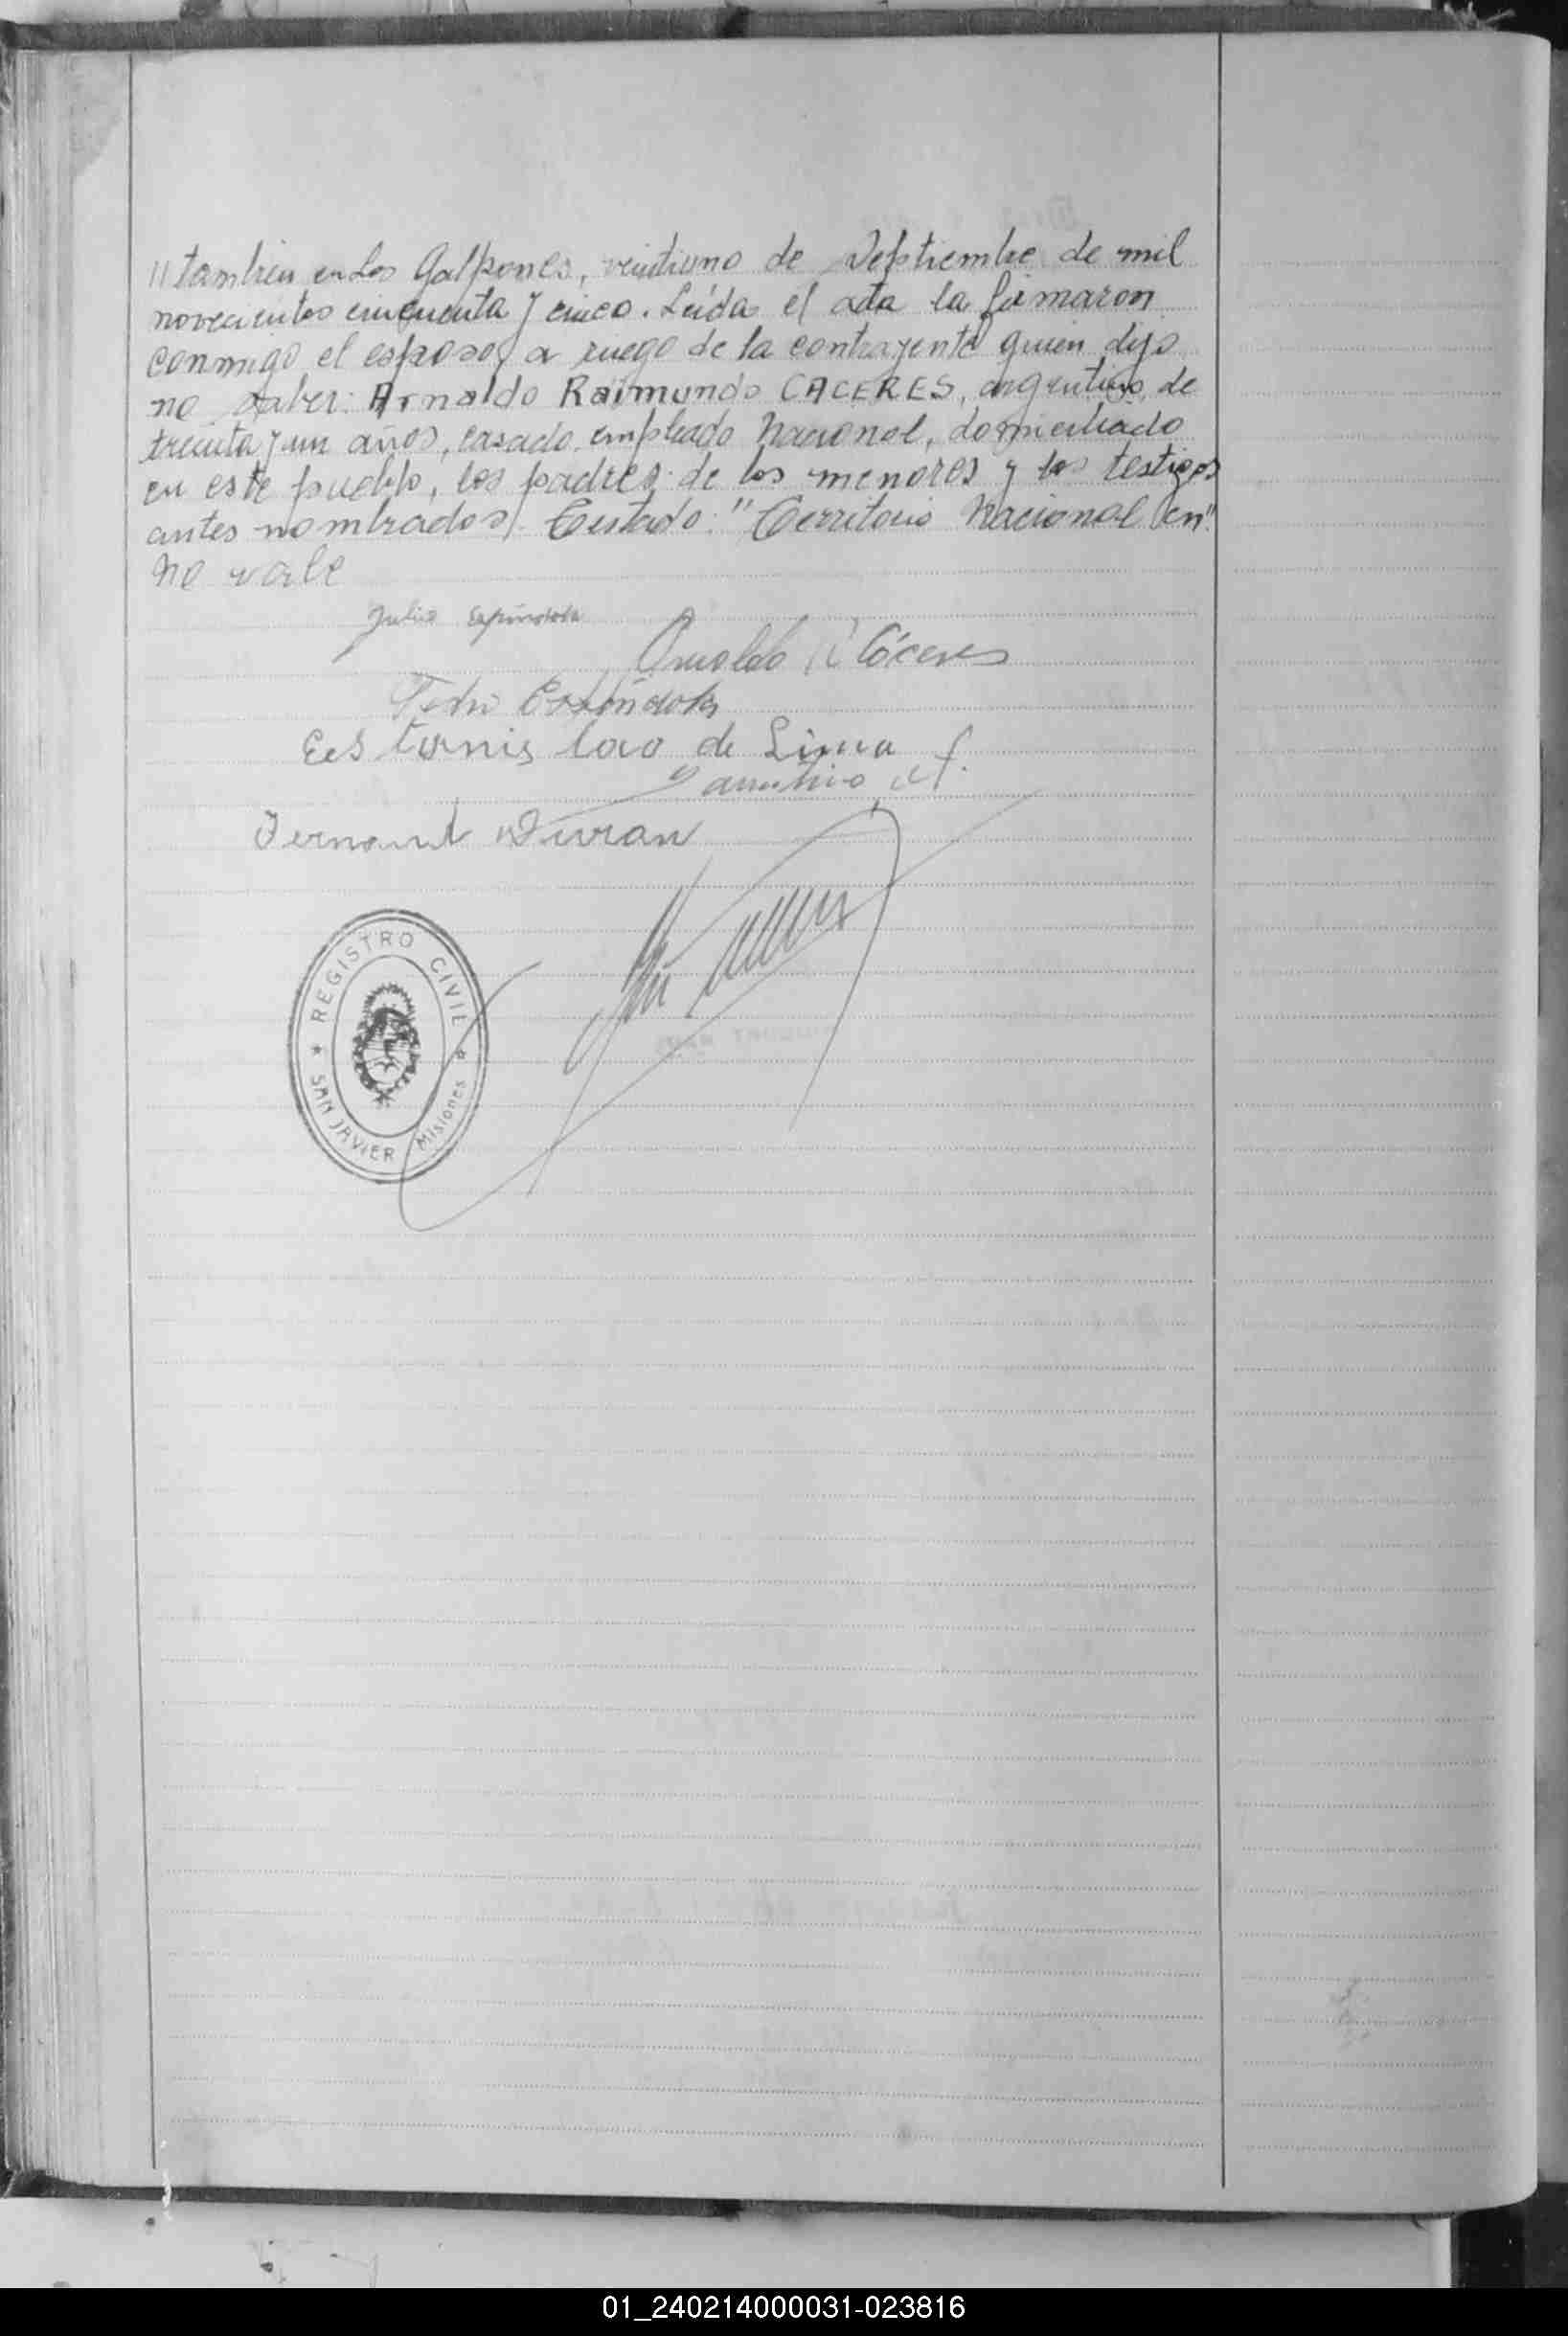 // tambien en Los Galpones, veintiuno de Septiembre de mil
novecientos cincuenta y cinco. Leída el acta la firmaron
conmigo el esposo, a ruego de la contrayente quien dijo
no saber: Arnaldo Raimundo CACERES, argentino, de
treinta y un años, casado, empleado Nacional, domiciliado
en este pueblo, los padres de los menores y los testigos
antes nombrados. Testado: "Territorio Nacional en"
No vale
Julio Espindola
Arnaldo R Cáceres
Pedro Espíndola
Estanislao de Lima
Fernand Duran
REGISTRO CIVIL
SAN JAVIER Misiones
01_240214000031-023816